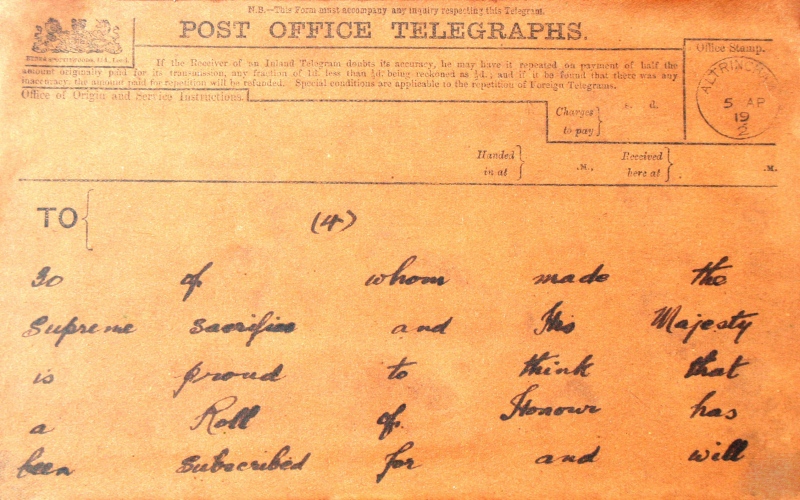 N.B.—This Form must accompany any inquiry respecting this Telegram.
POST OFFICE TELEGRAPHS.
If the Receiver of an Inland Telegram doubts its accuracy, he may have it repeated on payment of half the
amount originally paid for its transmission, any fraction of 1d. less than ½d. being reckoned as ½d.; and if it be found that there was any
inaccuracy, the amount paid for repetition will be refunded. Special conditions are applicable to the repetition of Foreign Telegrams.
Office of Origin and Service Instructions.
Office Stamp.
ALTRINCHAM
5 AP
19
Charges
to pay
s. d.
Handed
in at
.M.,
Received
here at
.M.
TO
(4)
30 of whom made the
Supreme sacrifice and His Majesty
is proud to think that
a Roll of Honour has
been subscribed for and will